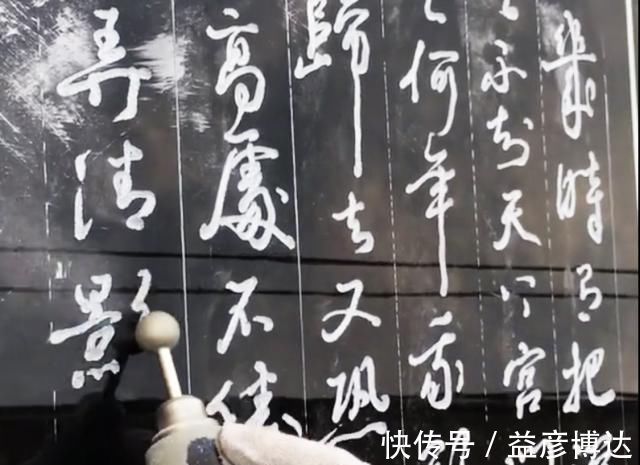 幾時有把
不知天上宮
何年我
歸去又恐
高處不勝
弄清影
快传号／益彦博达